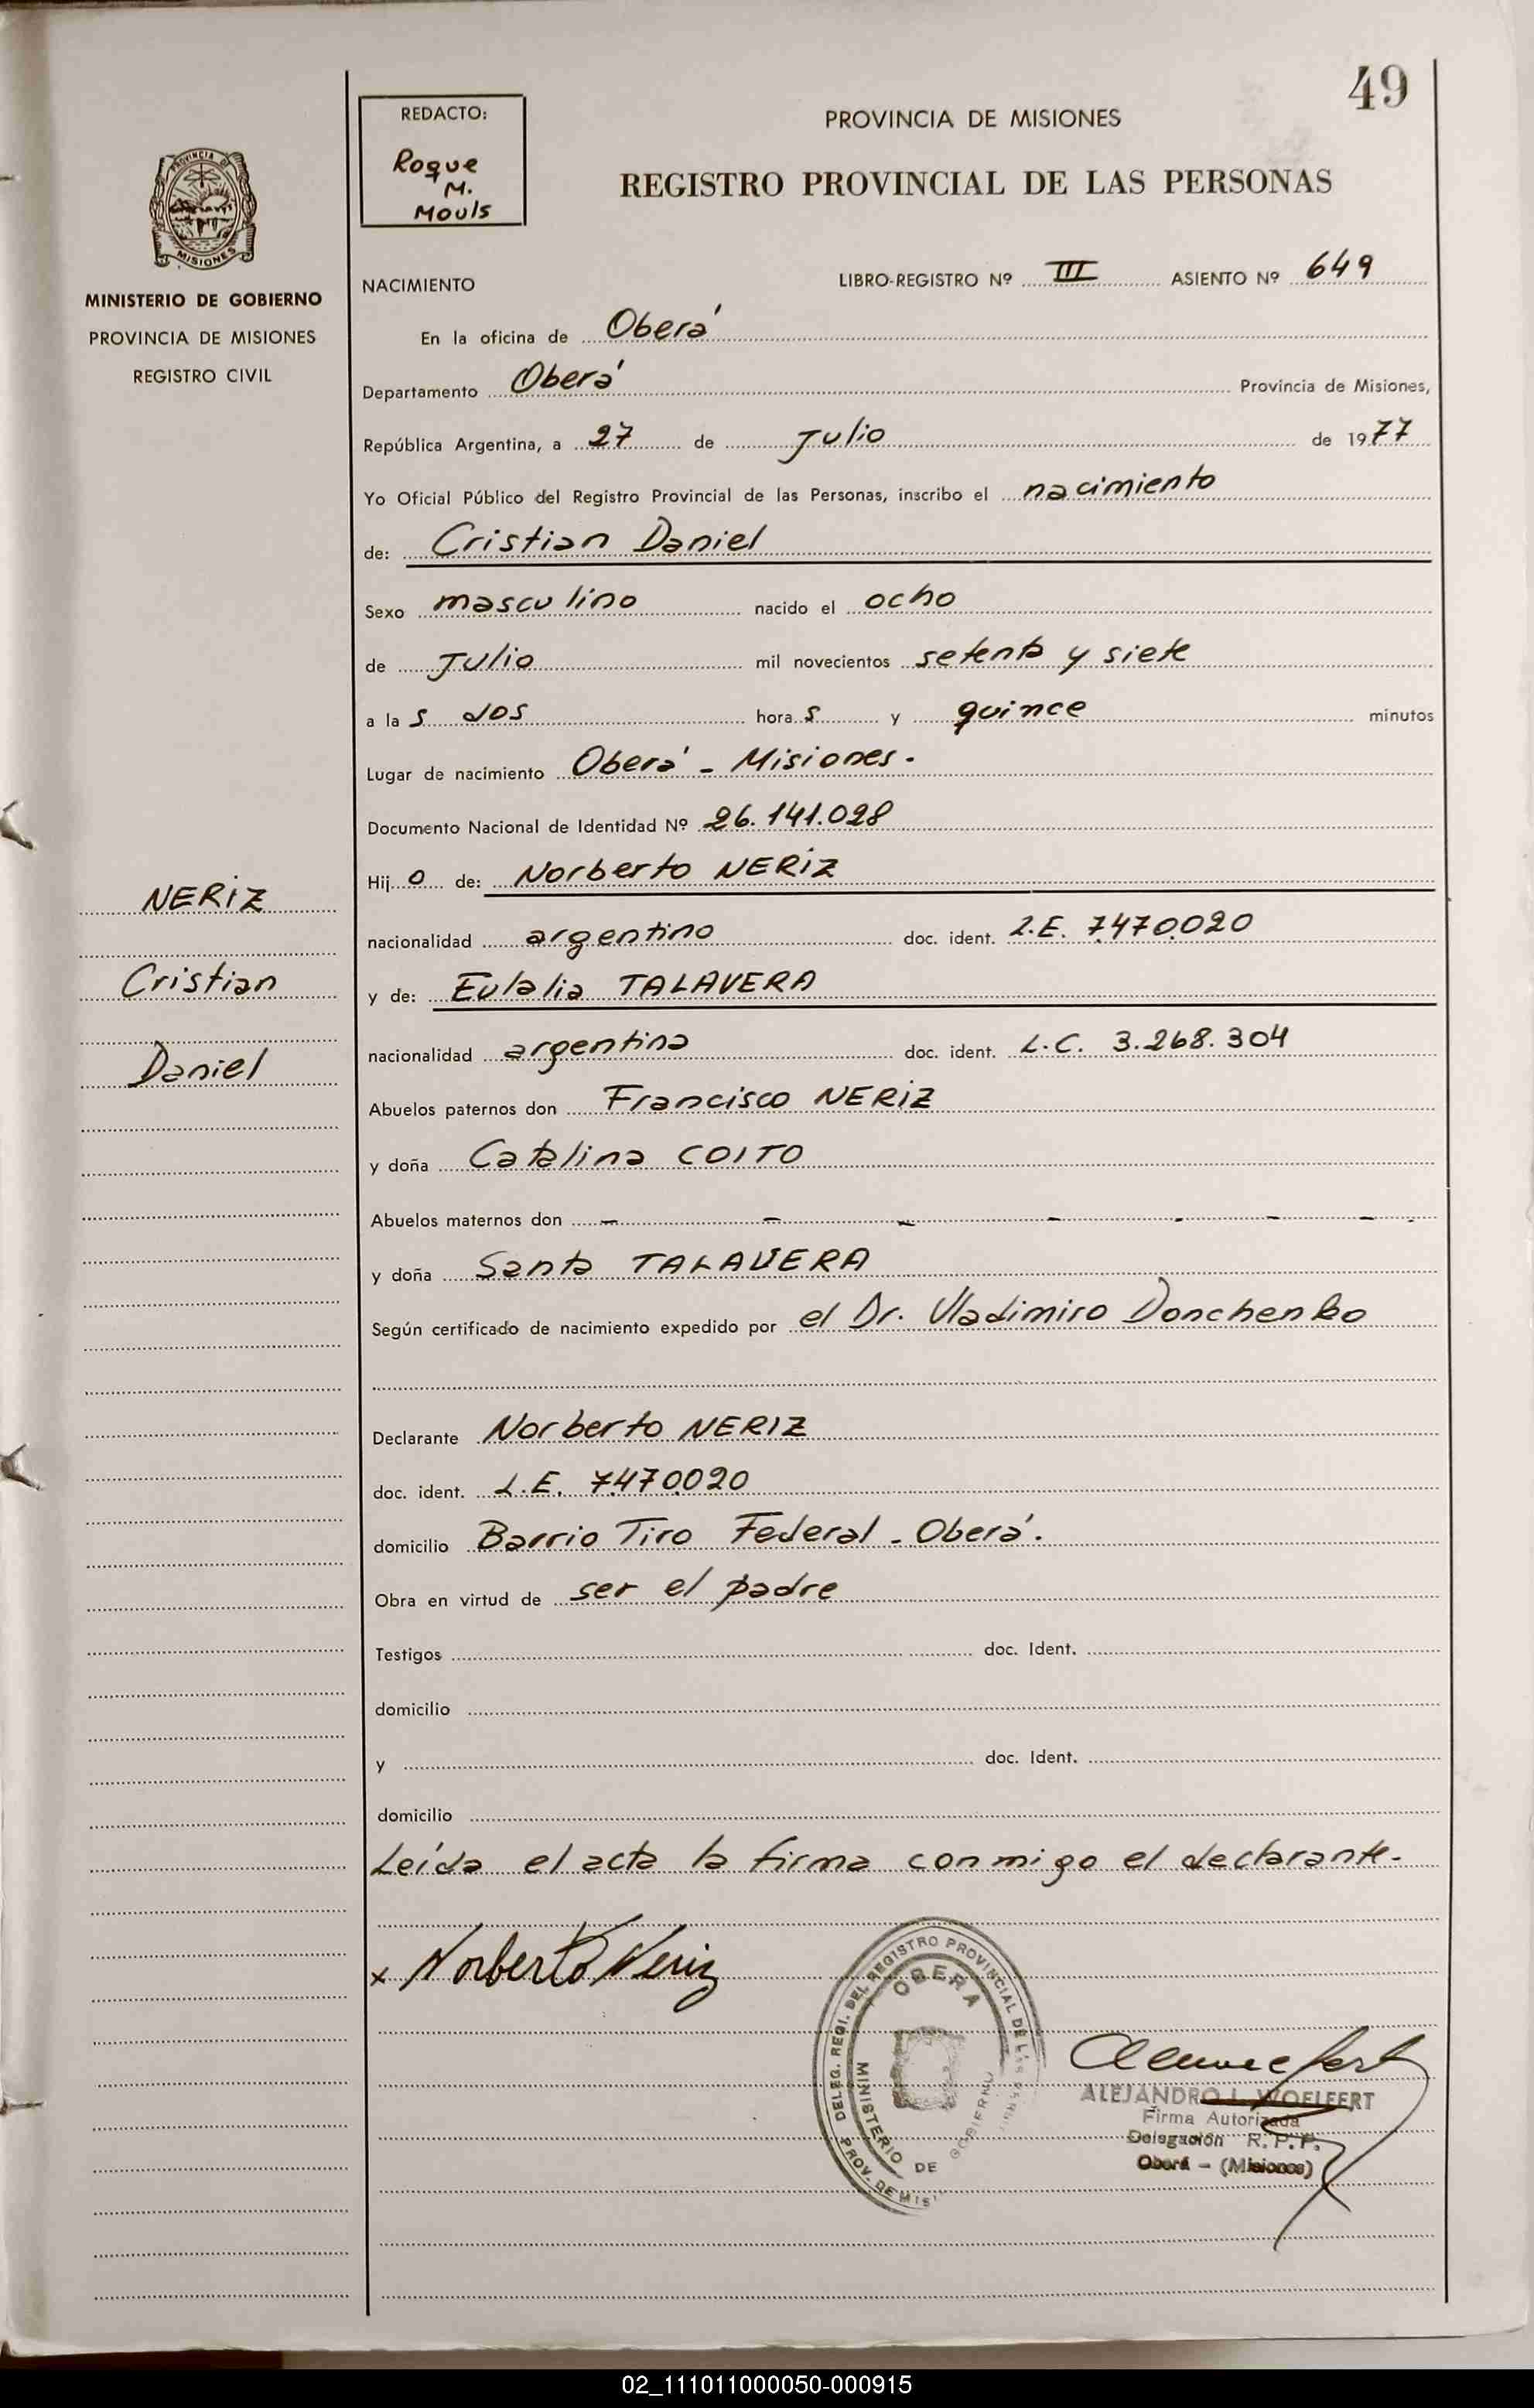 49
REDACTO:
Roque
M.
Mouls
PROVINCIA DE MISIONES
REGISTRO PROVINCIAL DE LAS PERSONAS
PROVINCIA DE
MISIONES
MINISTERIO DE GOBIERNO
PROVINCIA DE MISIONES
REGISTRO CIVIL
NACIMIENTO LIBRO-REGISTRO Nº III ASIENTO Nº 649
En la oficina de Oberá
Departamento Oberá Provincia de Misiones,
República Argentina, a 27 de Julio de 1977
Yo Oficial Público del Registro Provincial de las Personas, inscribo el nacimiento
de: Cristian Daniel
Sexo masculino nacido el ocho
de Julio mil novecientos setenta y siete
a la s dos hora s y quince minutos
Lugar de nacimiento Oberá - Misiones.
Documento Nacional de Identidad Nº 26.141.028
Hij o de: Norberto NERIZ
nacionalidad argentino doc. ident. L.E. 7.470.020
y de: Eulalia TALAVERA
nacionalidad argentina doc. ident. L.C. 3.268.304
Abuelos paternos don Francisco NERIZ
y doña Catalina COITO
Abuelos maternos don - - - - - - -
y doña Santa TALAVERA
Según certificado de nacimiento expedido por el Dr. Vladimiro Donchenko
Declarante Norberto NERIZ
doc. ident. L.E. 7.470.020
domicilio Barrio Tiro Federal - Oberá.
Obra en virtud de ser el padre
Testigos doc. Ident.
domicilio
y doc. Ident.
domicilio
Leída el acta la firma conmigo el declarante.
NERIZ
Cristian
Daniel
x Norberto Neriz
DELEG. REGI. DEL REGISTRO PROVINCIAL DE
OBERA
MINISTERIO DE GOBIERNO
PROV. DE MIS
ALEJANDRO L. WOELFERT
Firma Autorizada
Delegación R.P.P.
Oberá - (Misiones)
02_111011000050-000915